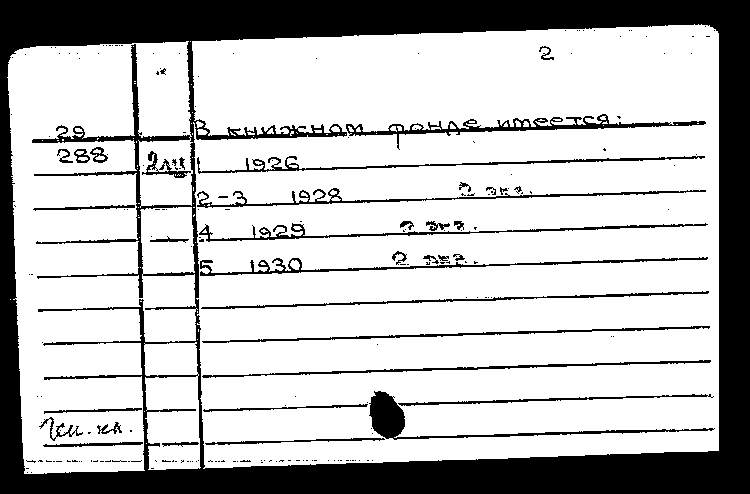 2
29 В книжном фонде имеется:
288 1 1926
2-3 1928 2 экз.
4 1929 2 экз.
5 1930 2 экз.